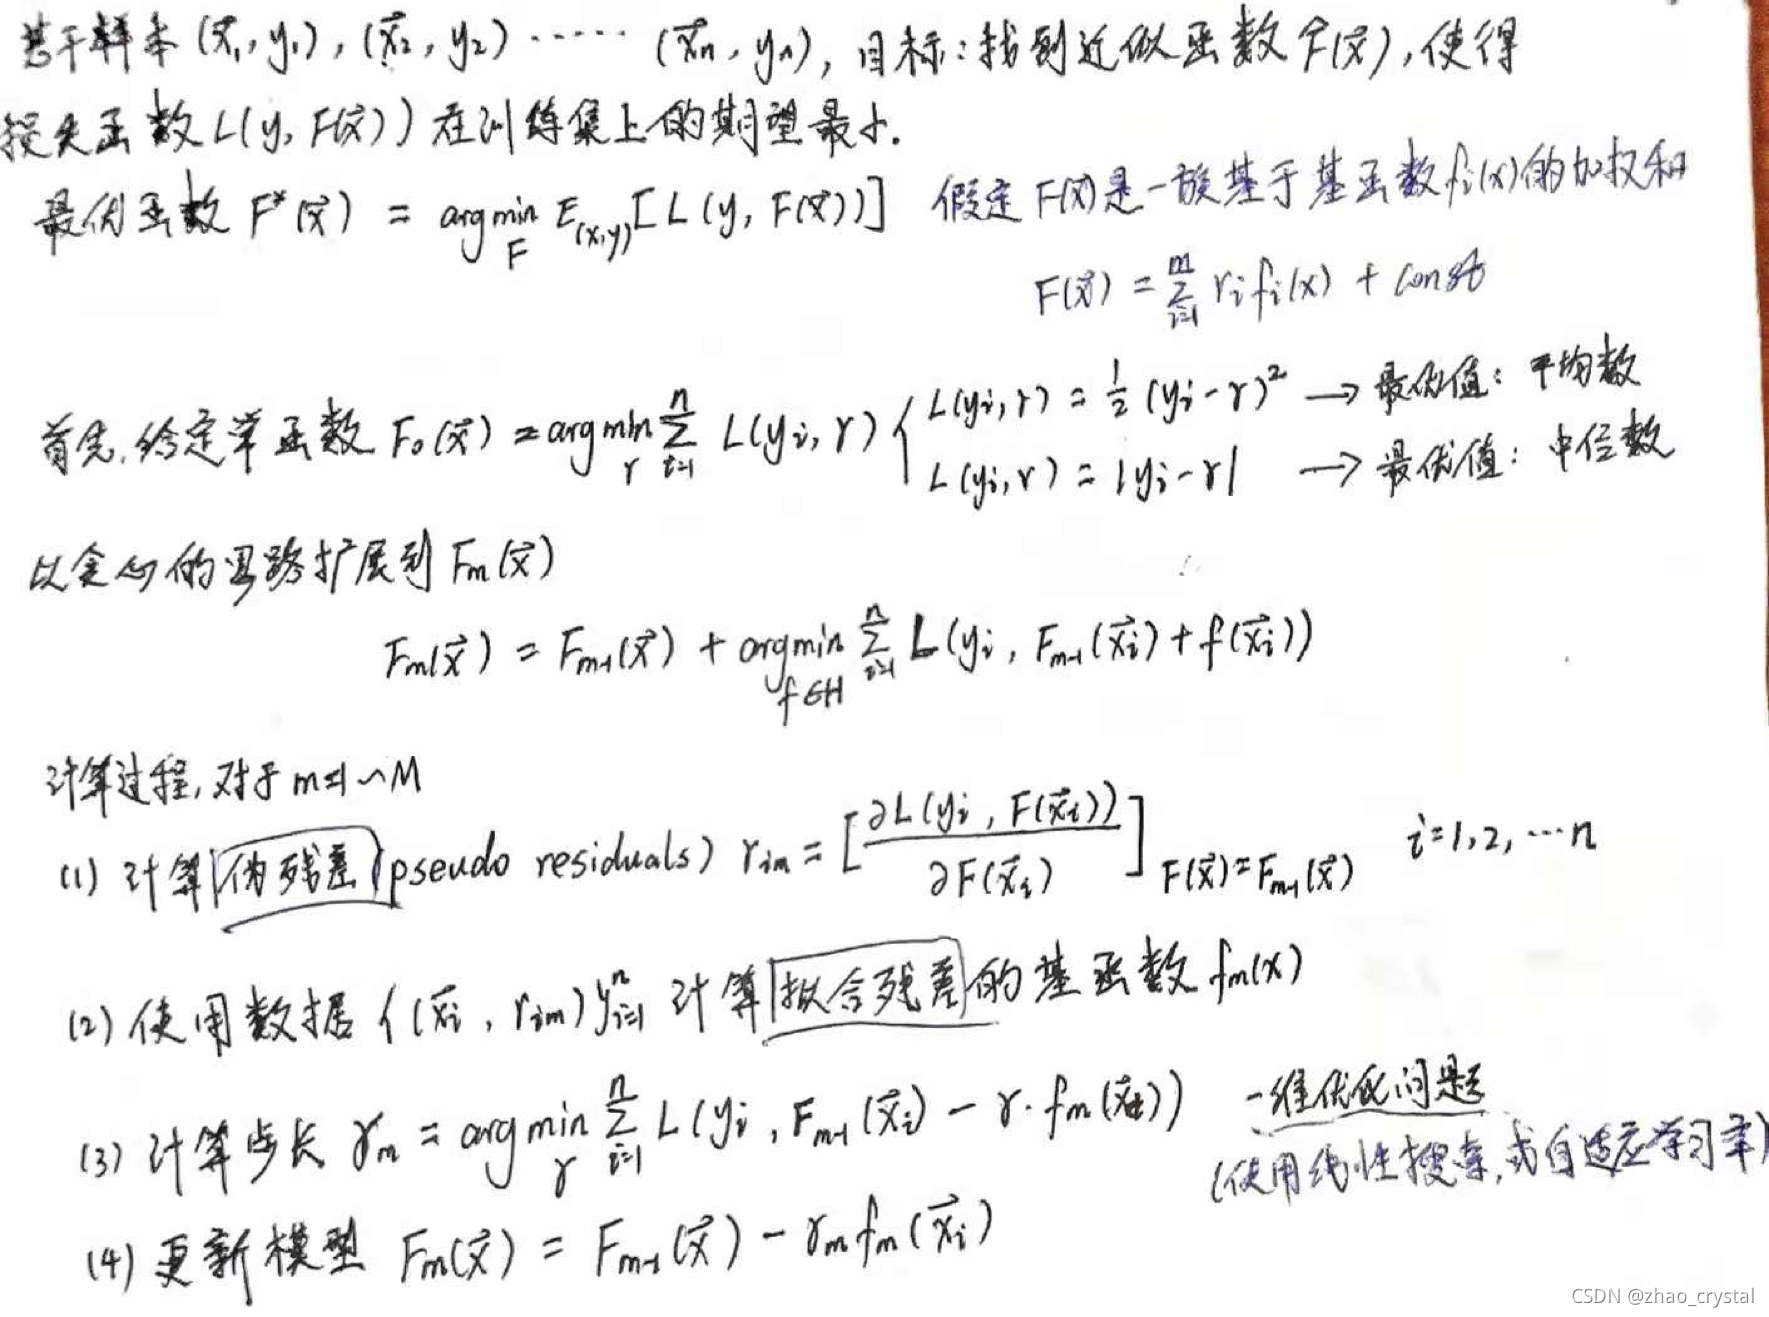 基于样本 (x⃗₁, y₁), (x⃗₂, y₂) ······ (x⃗n, yn), 目标: 找到近似函数 F̂(x⃗), 使得
损失函数 L(y, F(x⃗)) 在训练集上的期望最小.
最优函数 F*(x⃗) = argmin_F E_(x,y)[L(y, F(x⃗))] 假定 F(x⃗)是一族基于基函数 fi(x)的加权和
F(x⃗) = Σ_{i=1}^{m} ri fi(x) + const
首先, 给定常函数 F₀(x⃗) = argmin_γ Σ_{i=1}^{n} L(yi, γ) { L(yi, γ) = 1/2 (yi - γ)² → 最优值: 平均数
L(yi, γ) = |yi - γ| → 最优值: 中位数
以贪心的思路扩展到 Fm(x⃗)
Fm(x⃗) = Fm-1(x⃗) + argmin_{f∈H} Σ_{i=1}^{n} L(yi, Fm-1(x⃗i) + f(x⃗i))
计算过程, 对于 m=1~M
(1) 计算伪残差 (pseudo residuals) rim = [∂L(yi, F(x⃗i)) / ∂F(x⃗i)]_{F(x⃗)=Fm-1(x⃗)} i=1,2,···n
(2) 使用数据 {(x⃗i, rim)}_{i=1}^{n} 计算拟合残差的基函数 fm(x)
(3) 计算步长 γm = argmin_γ Σ_{i=1}^{n} L(yi, Fm-1(x⃗i) - γ·fm(x⃗i)) 一维优化问题
(使用线性搜索, 或自适应学习率)
(4) 更新模型 Fm(x⃗) = Fm-1(x⃗) - γm fm(x⃗i)
CSDN @zhao_crystal